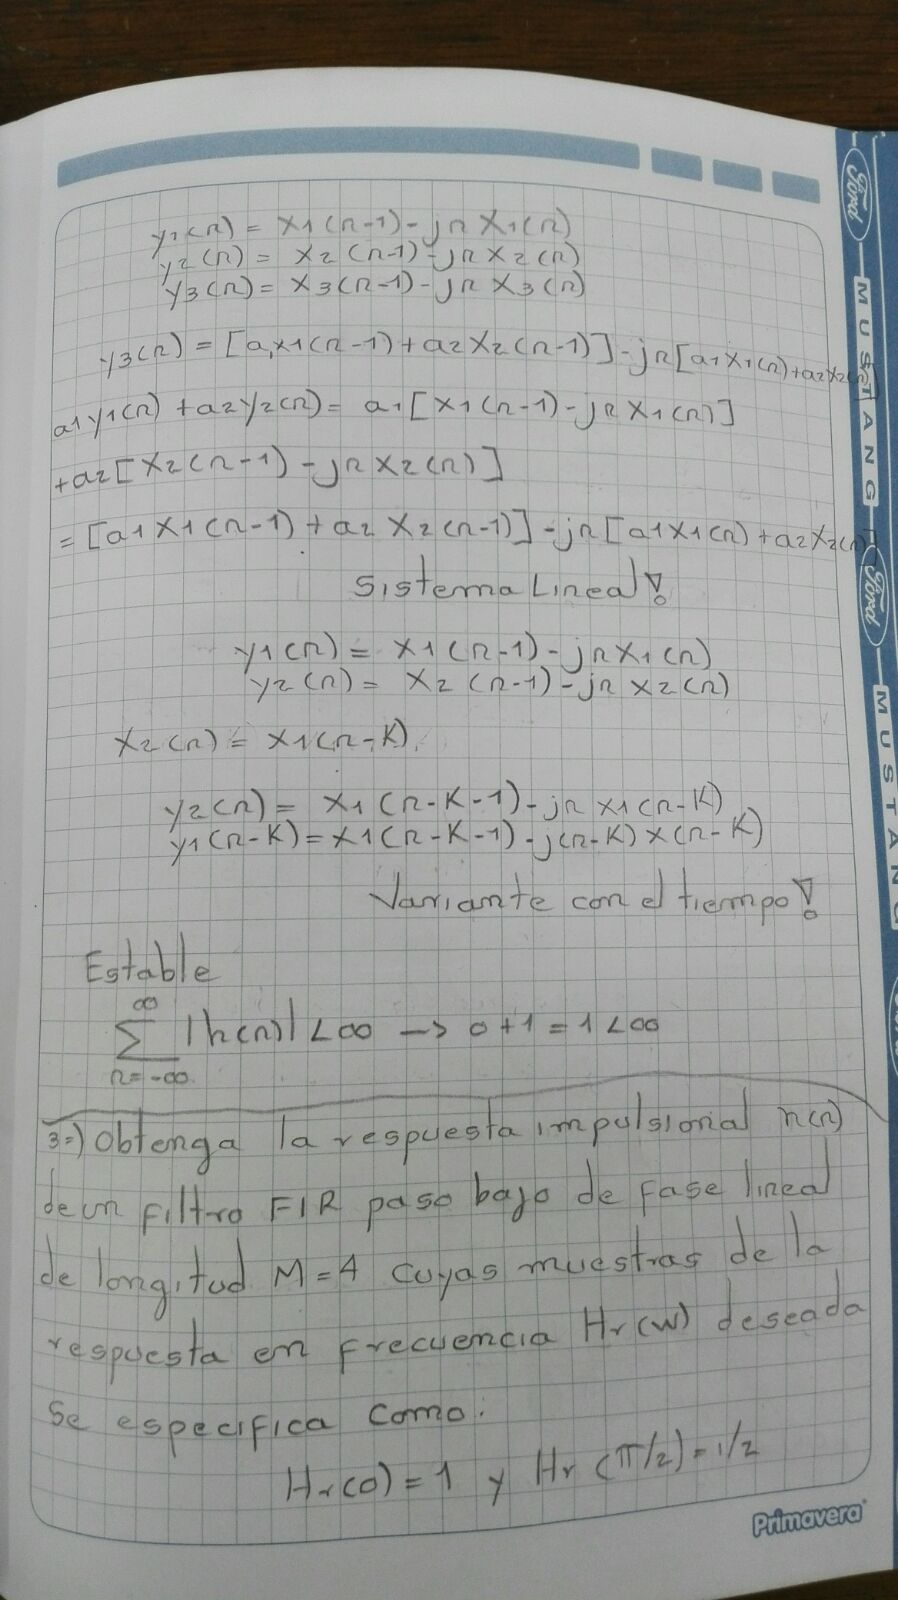 y1(n) = x1(n-1) - jn x1(n)
y2(n) = x2(n-1) - jn x2(n)
y3(n) = x3(n-1) - jn x3(n)
y3(n) = [a1x1(n-1) + a2x2(n-1)] - jn[a1x1(n) + a2x2(n)]
a1y1(n) + a2y2(n) = a1[x1(n-1) - jn x1(n)]
+a2[x2(n-1) - jn x2(n)]
= [a1x1(n-1) + a2 x2(n-1)] - jn[a1x1(n) + a2x2(n)]
Sistema Lineal!
y1(n) = x1(n-1) - jn x1(n)
y2(n) = x2(n-1) - jn x2(n)
x2(n) = x1(n-K)
y2(n) = x1(n-K-1) - jn x1(n-K)
y1(n-K) = x1(n-K-1) - j(n-K) x(n-K)
Variante con el tiempo!
Estable
∞
∑ |h(n)| < ∞ → 0+1 = 1 < ∞
n=-∞
3=) Obtenga la respuesta impulsional h(n)
de un filtro FIR paso bajo de fase lineal
de longitud M=4 cuyas muestras de la
respuesta en frecuencia Hr(w) deseada
se especifica como:
Hr(0) = 1 y Hr(π/2) = 1/2
Primavera
Ford
MUSTANG
Ford
MUSTANG